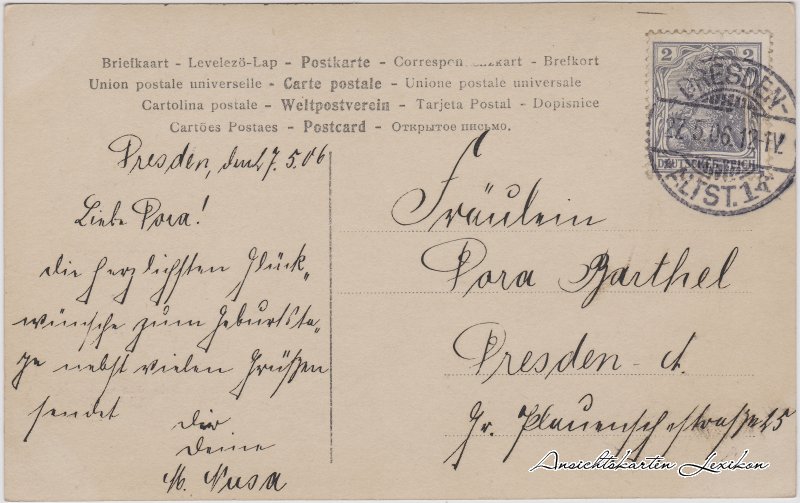 Briefkaart - Levelező-Lap - Postkarte - Correspondenzkart - Brefkort
Union postale universelle - Carte postale - Unione postale universale
Cartolina postale - Weltpostverein - Tarjeta Postal - Dopisnice
Cartões Postaes - Postcard - Открытое письмо.
2 2
DEUTSCHES REICH
DRESDEN-
27.5.06.
ALTST. 1
Dresden, den 27.5.06
Liebe Dora!
die herzlichsten Glück„
wünsche zum Geburtsta„
ge nebst vielen Grüßen
sendet
dir
deine
M.
Fräulein
Dora Barthel
Dresden - A.
Gr. Plauenschestraße 25
Ansichtskarten Lexikon